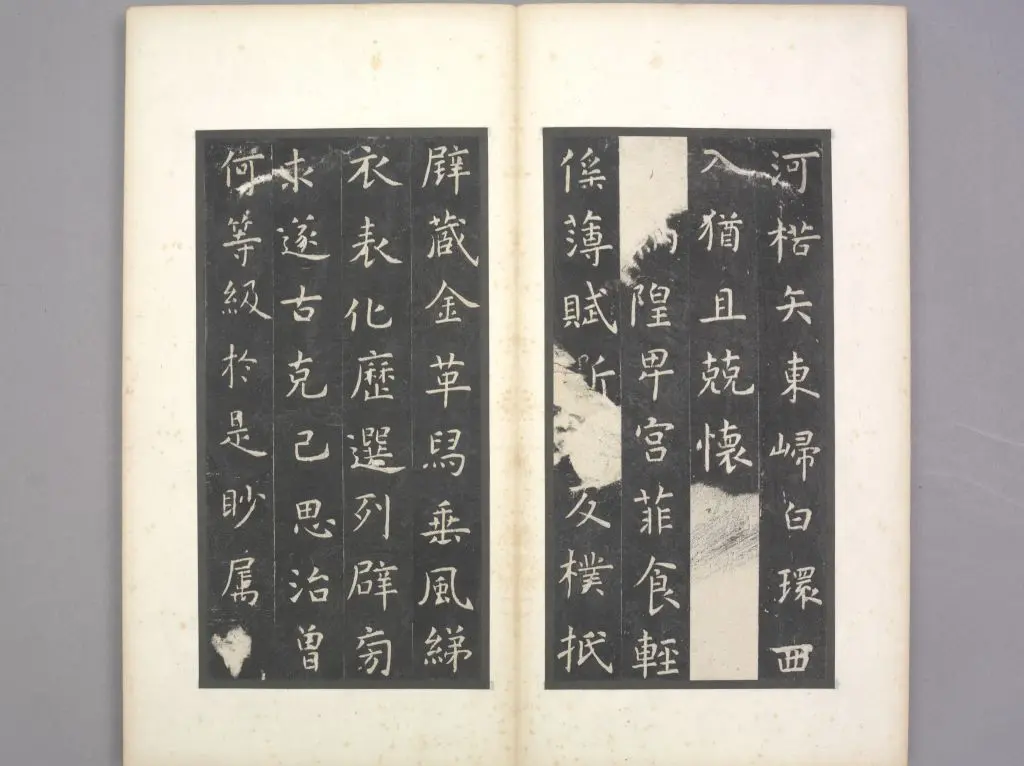 河楛矢東歸白環西
入猶且兢懷
隍卑宫菲食輕
傜薄賦反樸抵
璧藏金革舄垂風綈
衣表化歷選列辟旁
求遂古克己思治曾
何等級於是眇屬